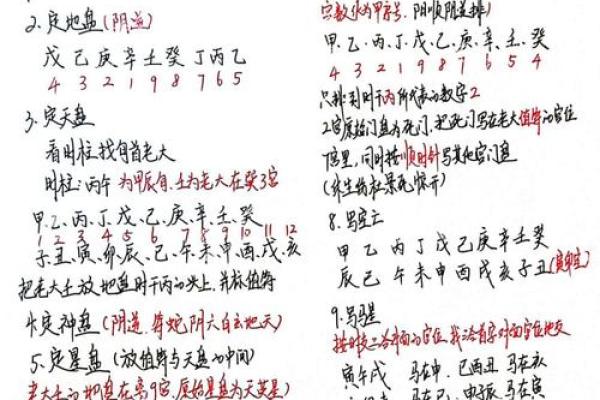 2.定地盘(阴逆)
戊己庚辛壬癸丁丙乙
4 3 2 1 9 8 7 6 5
3.定天盘
看时柱找旬首老大
时柱:丙午 为甲辰旬、壬为老大在癸3宫
甲、乙、丙、丁、戊、己、庚、辛、壬、癸
1 2 3 4 5 6 7 8 9 10 11 12
子丑、寅、卯、辰、己、午、未、申、酉、戌、亥
把老大壬放地盘时干丙的头上,并标值符
4.定神盘(阴逆、符蛇阴六白玄地天)
5.定星盘(放值符与天盘の中间)
老大壬の地盘在离9宫,原始星盘为天英星)
宫数作为甲序号,阳顺阴逆排)
甲、乙、丙、丁、戊、己、庚、辛、壬、癸
4 3 2 1 9 8 7 6 5 4
只排到时干丙所代表の数字2
2宫原始门盘为死门,把死门写在老大值符の宫位
宫里,同时按顺时针写其他宫门盘
(休生伤杜景死惊开)
8.写空亡
甲乙丙丁戊己庚辛壬癸
辰己午未申酉戌亥子丑(寅卯空)
9.写马星
寅午戌 马在申、己酉丑 马在亥